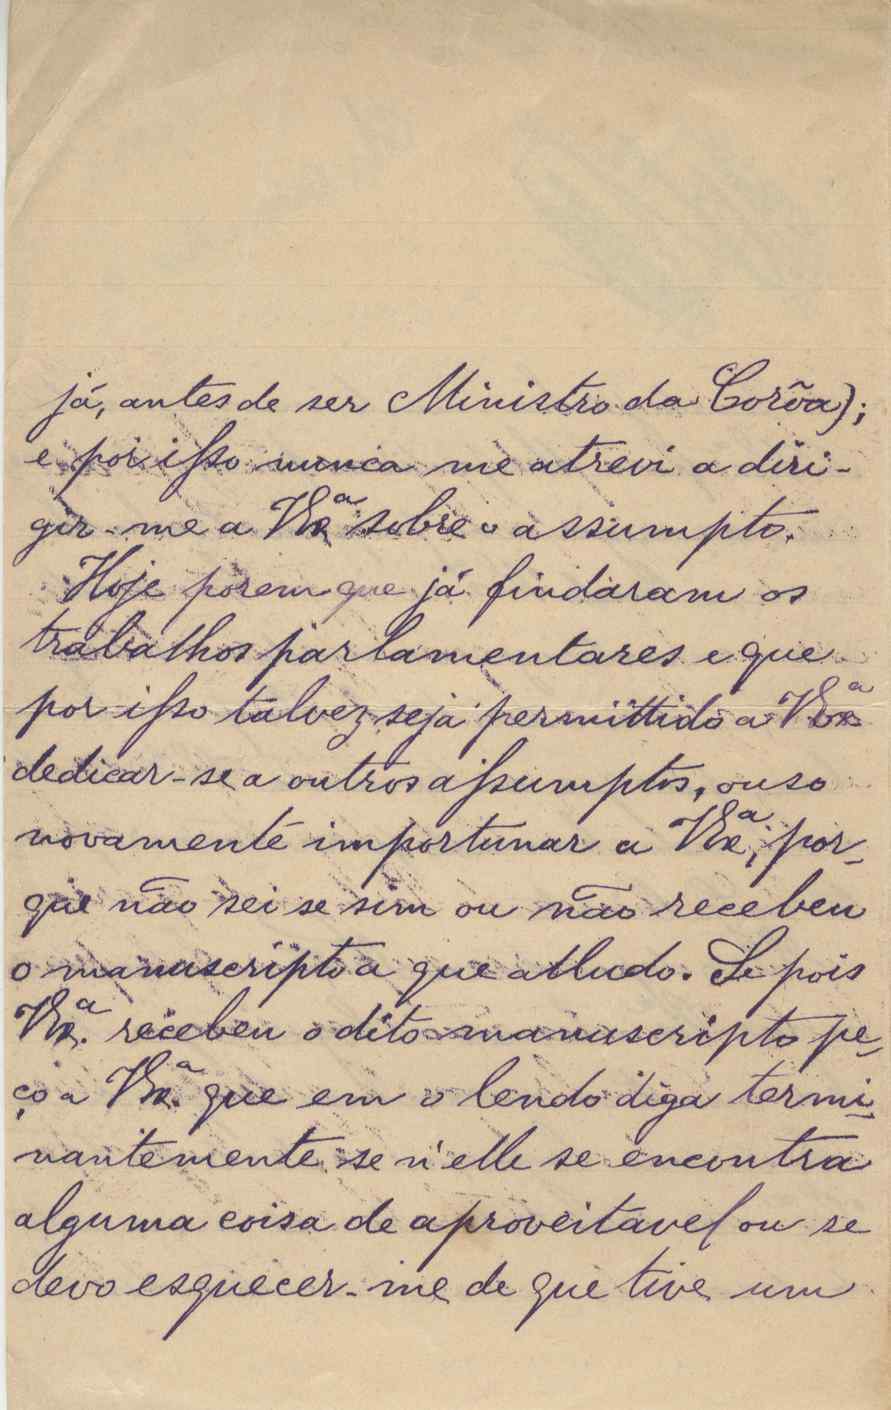 já, antes de ser Ministro da Corôa);
e por isso nunca me atrevi a diri-
gir-me a VExª sobre o assumpto.
Hoje porem que já findaram os
trabalhos parlamentares e que
por isso talvez seja permittido a VExª
dedicar-se a outros assumptos, ouso
novamente importunar a VExª, por-
que não sei se sim ou não recebeu
o manuscripto a que alludo. Se pois
VExª. recebeu o dito manuscripto pe-
ço a VExª. que em o lendo diga termi-
nantemente se n'elle se encontra
alguma coisa de aproveitavel ou se
devo esquecer-me de que tive um